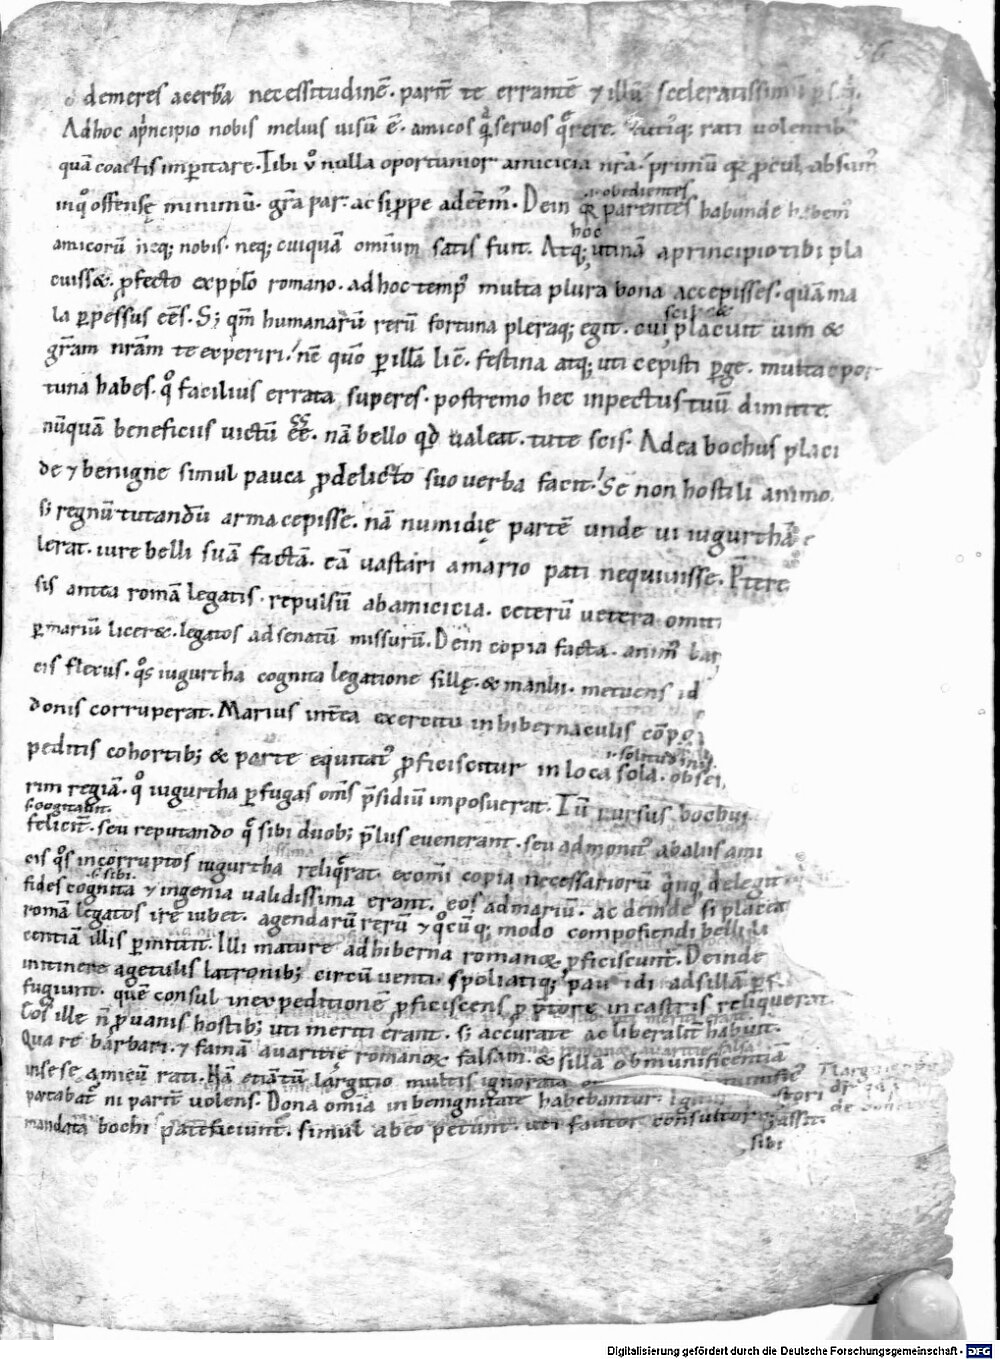 demeres acerbā necessitudinē. parit̄ te errantē ⁊ illū sceleratissimū p̄s.
Adhoc apͥncipio nobis melius uisū ē. amicos q̄ seruos q̄rere. tutiq; rati uolentib;
quā coactis imꝑitare. Tibi ůo nulla oportunior amicicia nr̄a. primū qꝛ ꝓcul absum᷒
inq̊ offensę minimū. gr̄a par. ac si ꝓpe adeēm᷒. Dein qꝛ parentes habunde habem᷒
.i. obedientes
amicorū neq; nobis. neq; cuiquā omium satis fuit. Atq; utinā aprincipio tibi pla
hoc
cuiss&. ꝓfecto expplo romano. ad hoc temp᷒ multa plura bona accepisses. quā ma
la ꝑpessus eēs. S; qm̄ humanarū rerū fortuna pleraq; egit. cui placuit uim &
scil&
gr̄am nr̄am te experiri. nē quo ꝑ illā lic̄. festina atq; uti cepisti ꝑge. multa opor
tuna habes. q̊ facilius errata superes. postremo hec inpectus tuū dimitte.
nūquā beneficiis uictū eē. nā bello qd̄ ualeat. tute scis. Adea bochus placi
de ⁊ benigne simul pauca ꝓ delicto suo uerba facit. Se non hostili animo.
s; regnū tutandū arma cepisse. nā numidię partē unde ui iugurthā e
lerat. iure belli suā factā. eā uastari a mario pati nequiuisse. P̄tere
sis antea romā legatis. repulsū abamicicia. ceterū uetera omit
ꝑ mariū licer&. legatos ad senatū missurū. Dein copia facta. anim᷒ bar
eis flexus. q̊s iugurtha cognita legatione sillę. & manlii. metuens id
donis corruperat. Marius intēa exercitu in hibernaculis cōpo
peditis cohortib; & parte equitat᷒ ꝓficiscitur in loca sola. obses
.i. solitudines
rim regiā. q̊ iugurtha ꝑfugas oms p̄sidiū imposuerat. Tū rursus bochus
s. cogitauit.
felicit̄. seu reputando q̄ sibi duob; p̄liis euenerant. seu admonit᷒ abaliis ami
cis q̊s incorruptos iugurtha reliq̄rat. exomi copia necessariorū qͥnq; delegit
.s. sibi.
fides cognita ⁊ ingenia ualidissima erant. eos admariū. ac deinde si placeat
romā legatos ire iubet. agendarū rerū ⁊ q̊cūq; modo componendi belli li
centiā illis ꝑmittit. Illi mature ad hiberna romanoꝝ ꝓficiscunt̄. Deinde
initinere agetulis latronib; circūuenti. spoliatiq; pauidi ad sillā ꝑf
fugiunt. quē consul inexpeditionē ꝓficiscens ꝓ p̄tore incastris reliquerat.
Eos ille n̄ ꝓ uanis hostib; uti meriti erant. s; accurate ac liberalit̄ habuit.
Qua re barbari. ⁊ famā auaritię romanoꝝ falsam. & sillā ob munificentiā
insese amicū rati. Nā etiātū largitio multis ignorata
putabat᷒ ni parit̄ uolens. Dona omīa in benignitate habebantur.
mandata bochi patefaciunt. simul abeo petunt. uti fautor consultor assit.
sibi